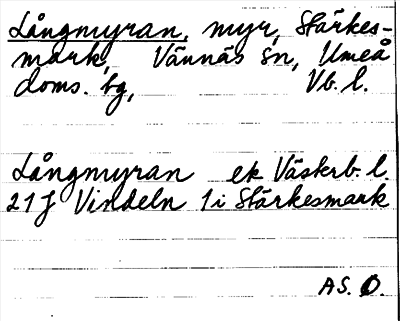 Långmyran, myr, Stärkes-
mark, Vännäs sn, Umeå
doms. bg, Vb. l.
Långmyran ek Västerb. l.
21 J Vindeln 1 i Stärkesmark
AS. Ö.